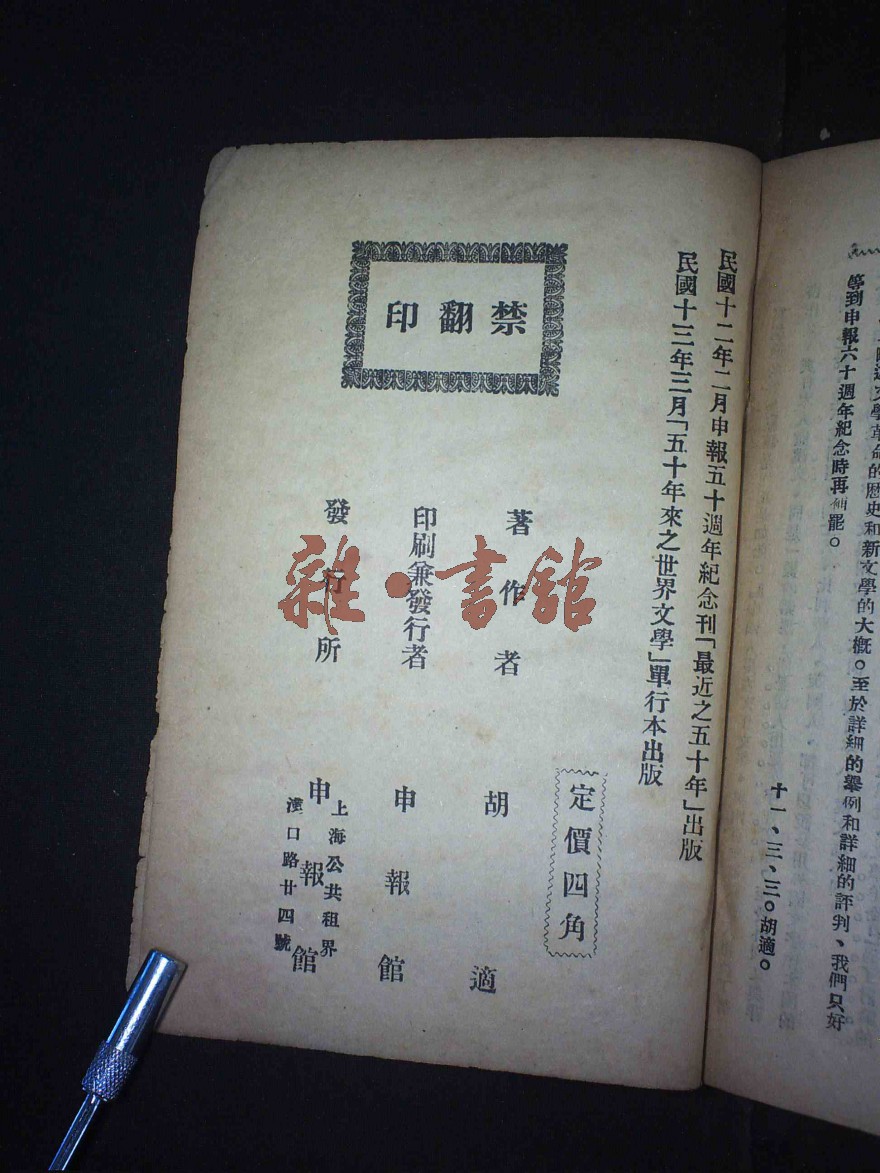 文學革命的歷史和新文學的大概。至於詳細的舉例和詳細的評判、我們只好
等到申報六十週年紀念時再補罷。
十一、三、三。胡適。
民國十二年二月申報五十週年紀念刊「最近之五十年」出版
民國十三年三月「五十年來之世界文學」單行本出版
定價四角
著作者 胡適
印刷兼發行者 申報館
發行所 申報館
上海公共租界
漢口路廿四號
禁翻印
雜·書館